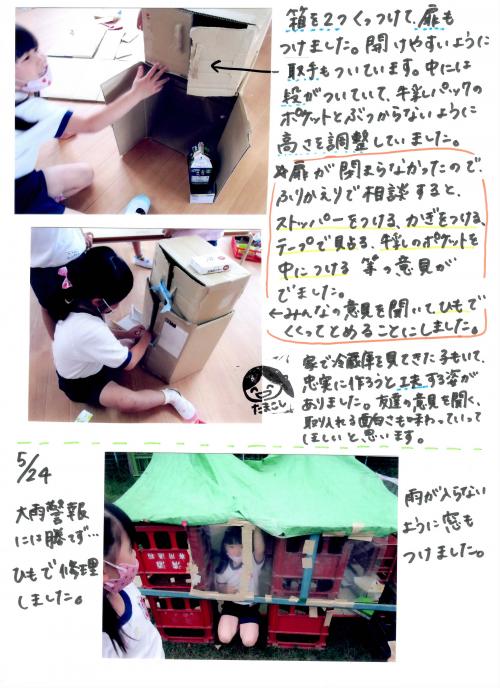 箱を2つくっつけて、扉も
つけました。開けやすいように
取手もついています。中には
段がついていて、牛乳パックの
ポケットとぶつからないように
高さを調整していました。
☆扉が閉まらなかったので、
ふりかえりで相談すると、
ストッパーをつける、かぎをつける、
テープで見る、牛乳のポケットを
中につける 等の意見が
でました。
←みんなの意見を聞いて、ひもで
くくってとめることにしました。
家で冷蔵庫を見てきた子もいて、
忠実に作ろうと工夫する姿が
ありました。友達の意見を聞く、
取り入れる面白さも味わっていって
ほしいと、思います。
たまこし
5/24
大雨警報
には勝てず…
ひもで修理
しました。
雨が入らない
ように窓も
つけました。